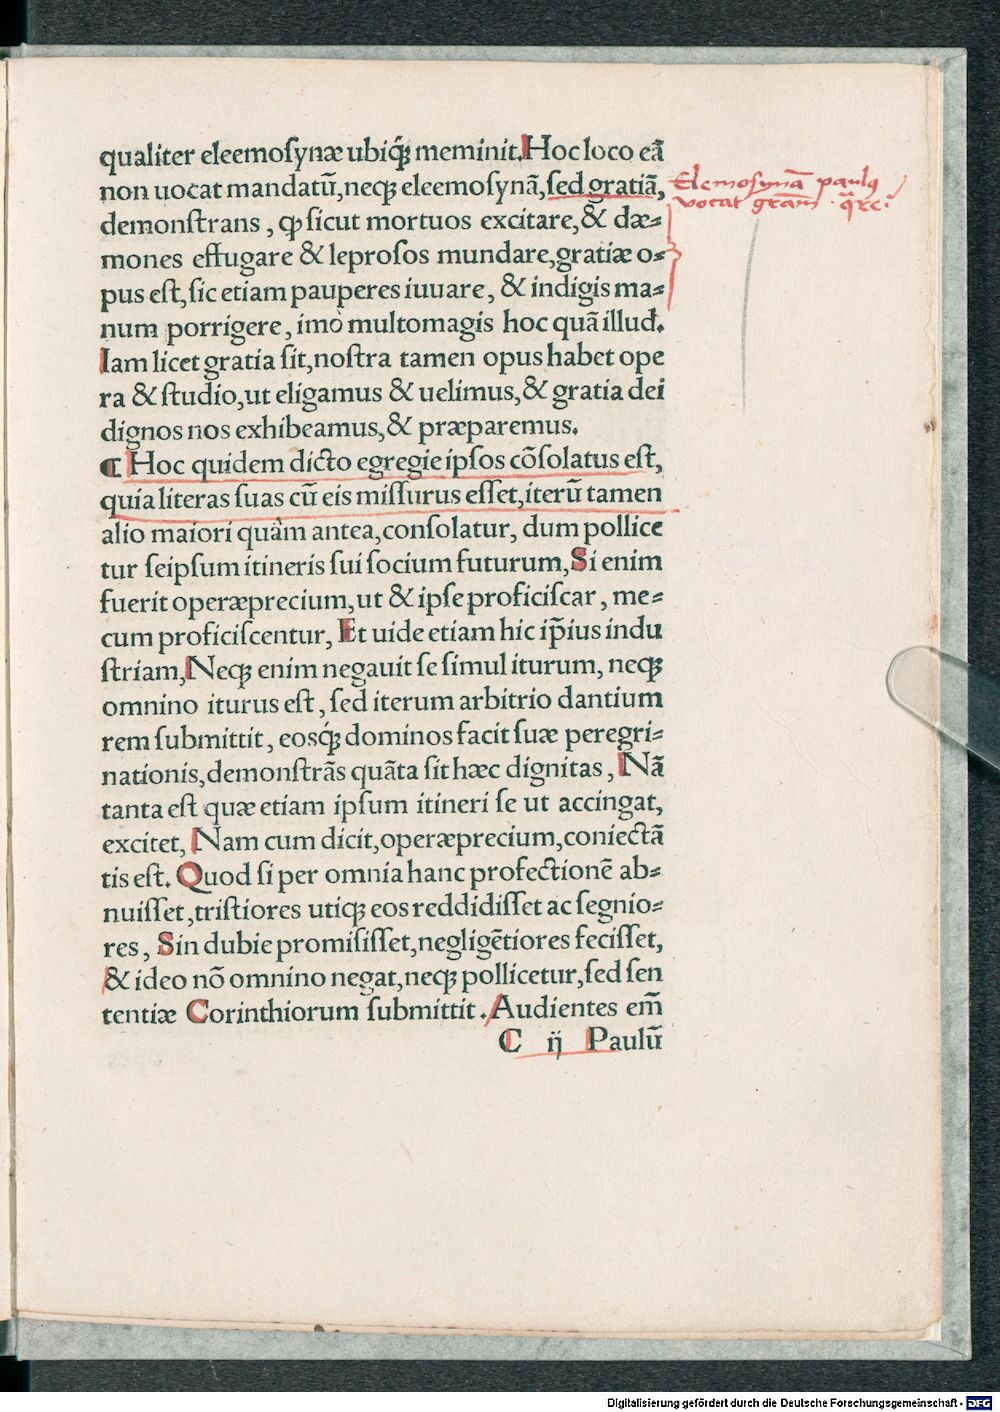 qualiter eleemoſynæ ubiq́ꝫ meminit. Hoc loco eã
non uocat mandatũ, neqꝫ eleemoſynã, ſed gratiã,
demonſtrans, ꝙ ſicut mortuos excitare, & dæ⸗
mones effugare & leproſos mundare, gratiæ o⸗
pus eſt, ſic etiam pauperes iuuare, & indigis ma⸗
num porrigere, imò multomagis hoc quã illud.
Iam licet gratia ſit, noſtra tamen opus habet ope
ra & ſtudio, ut eligamus & uelimus, & gratia dei
dignos nos exhibeamus, & præparemus.
¶ Hoc quidem dicto egregie ipſos cõſolatus eſt,
quia literas ſuas cũ eis miſſurus eſſet, iterũ tamen
alio maiori quâm antea, conſolatur, dum pollice
tur ſeipſum itineris ſui ſocium futurum, Si enim
fuerit operæprecium, ut & ipſe proficiſcar, me⸗
cum proficiſcentur, Et uide etiam hic ip̃ius indu
ſtriam, Neqꝫ enim negauit ſe ſimul iturum, neqꝫ
omnino iturus eſt, ſed iterum arbitrio dantium
rem ſubmittit, eosq́ꝫ dominos facit ſuæ peregri⸗
nationis, demonſtrãs quãta ſit hæc dignitas, Nã
tanta eſt quæ etiam ipſum itineri ſe ut accingat,
excitet, Nam cum dicit, operæprecium, coniectã
tis eſt. Quod ſi per omnia hanc profectionẽ ab⸗
nuiſſet, triſtiores utiqꝫ eos reddidiſſet ac ſegnio⸗
res, Sin dubie promiſiſſet, negligẽtiores feciſſet,
& ideo nõ omnino negat, neqꝫ pollicetur, ſed ſen
tentiæ Corinthiorum ſubmittit. Audientes em̃
C ij Paulũ
Elemosynã paulꝰ
vocat gr̃am
Digitalisierung gefördert durch die Deutsche Forschungsgemeinschaft - DFG